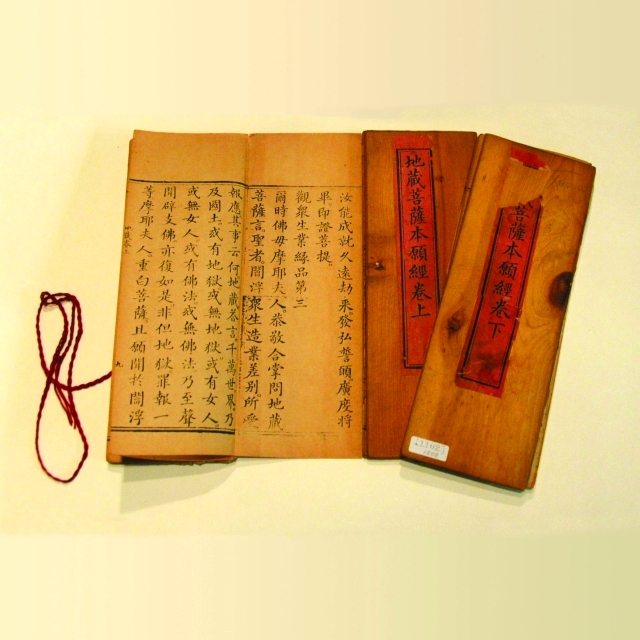 汝能成就久遠劫來。發弘誓願廣度將
畢。卽證菩提。
觀衆生業緣品第三
爾時佛母摩耶夫人。恭敬合掌問地藏
菩薩言。聖者。閻浮衆生造業差別所受
報應其事云何。地藏答言。千萬世界。乃
及國土。或有地獄。或無地獄。或有女人。
或無女人。或有佛法。或無佛法。乃至聲
聞辟支佛。亦復如是。非但地獄罪報一
等。摩耶夫人。重白菩薩。且願聞於閻浮
九
地藏菩薩本願經卷上
菩薩本願經卷下